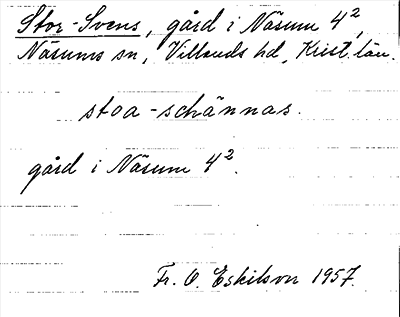 Stor-Svens, gård i Näsum 4²,
Näsums sn, Villands hd, Krist. län.
stoa-schännas.
gård i Näsum 4².
Fr. O. Eskilson 1957.